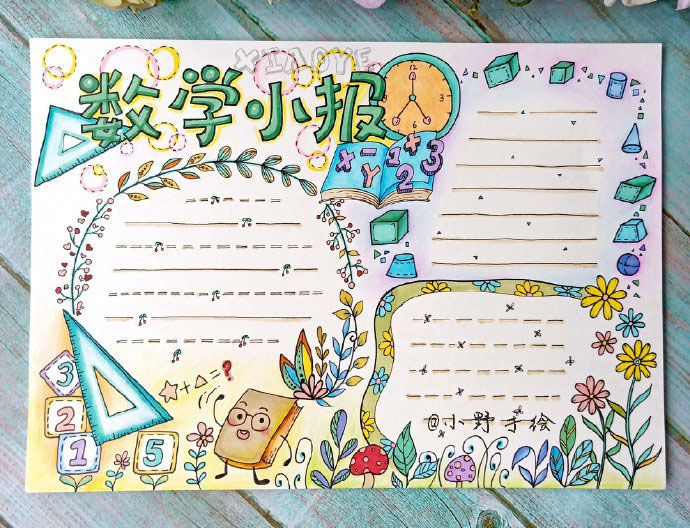 XIAOYE
数学小报
12
3
6
9
X - 1 + 3
Y 2
3
2
1 5
+ = ?
@小野手绘